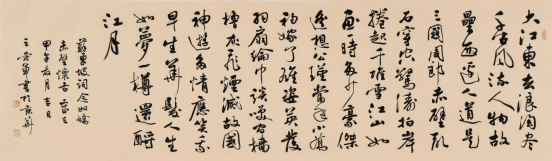 大江東去浪淘盡
千古風流人物故
壘西邊人道是
三國周郎赤壁亂
石穿空驚濤拍岸
捲起千堆雪江山如
畫一時多少豪傑
遙想公瑾當年小喬
初嫁了雄姿英發
羽扇綸巾談笑間檣
櫓灰飛煙滅故國
神遊多情應笑我
早生華髮人生
如夢一樽還酹
江月
蘇東坡詞念奴嬌
赤壁懷古
甲午 月吉日